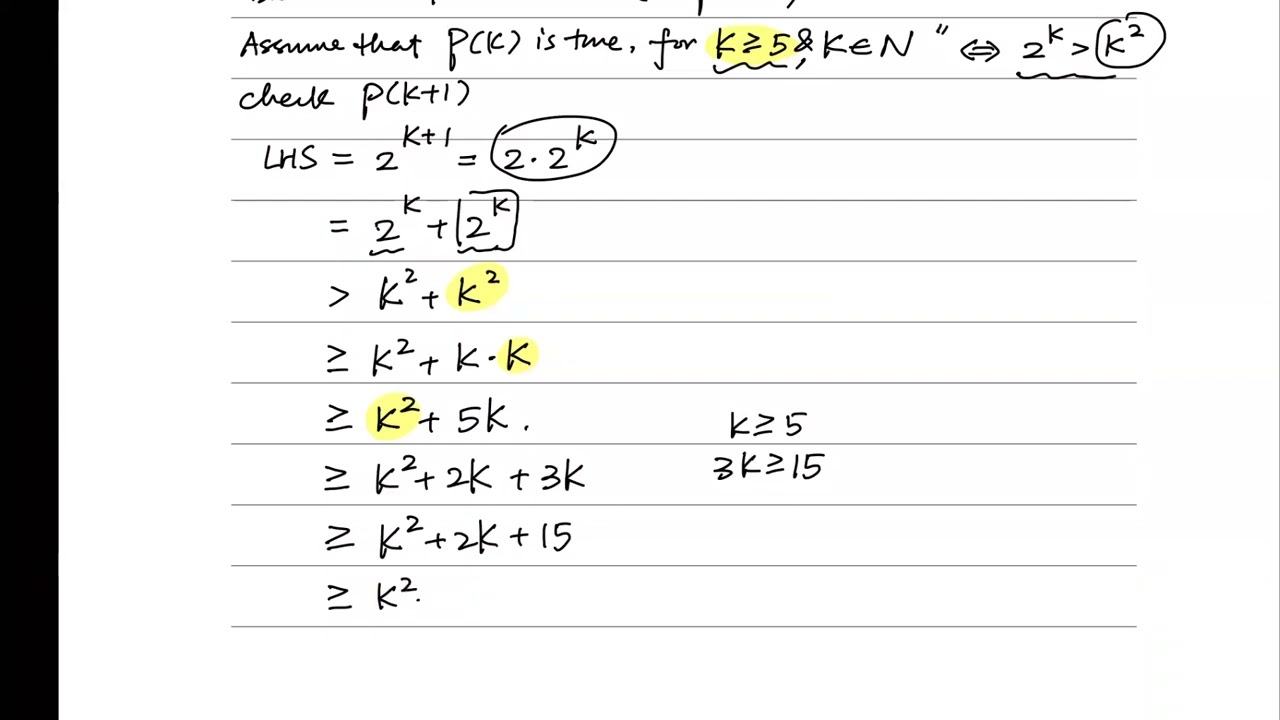 Assume that P(K) is true, for K ≥ 5 & K ∈ N " ⇔ 2^K > K^2
check P(K+1)
LHS = 2^{K+1} = 2 · 2^K
= 2^K + 2^K
> K^2 + K^2
≥ K^2 + K · K
≥ K^2 + 5K .
K ≥ 5
≥ K^2 + 2K + 3K
3K ≥ 15
≥ K^2 + 2K + 15
≥ K^2